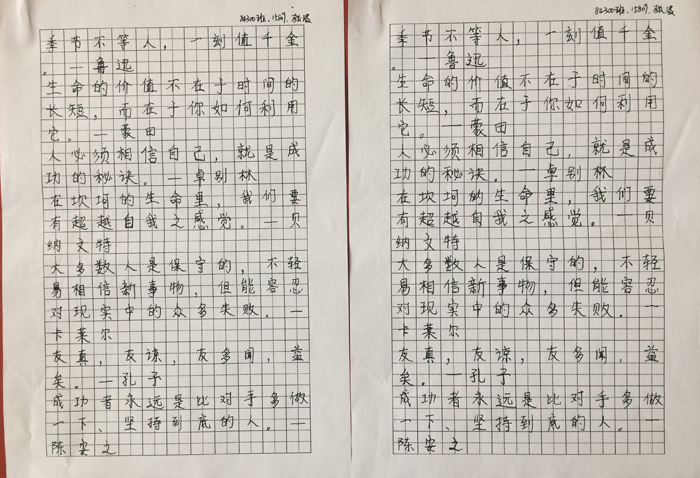 季节不等人，一刻值千金
。—鲁迅
生命的价值不在于时间的
长短，而在于你如何利用
它。—蒙田
人必须相信自己，就是成
功的秘诀。—卓别林
在坎坷的生命里，我们要
有超越自我之感觉。—贝
纳文特
大多数人是保守的，不轻
易相信新事物，但能容忍
对现实中的众多失败。—
卡莱尔
友真，友谅，友多闻，益
矣。—孔子
成功者永远是比对手多做
一下、坚持到底的人。—
陈安之
季节不等人，一刻值千金
。—鲁迅
生命的价值不在于时间的
长短，而在于你如何利用
它。—蒙田
人必须相信自己，就是成
功的秘诀。—卓别林
在坎坷的生命里，我们要
有超越自我之感觉。—贝
纳文特
大多数人是保守的，不轻
易相信新事物，但能容忍
对现实中的众多失败。—
卡莱尔
友真，友谅，友多闻，益
矣。—孔子
成功者永远是比对手多做
一下、坚持到底的人。—
陈安之